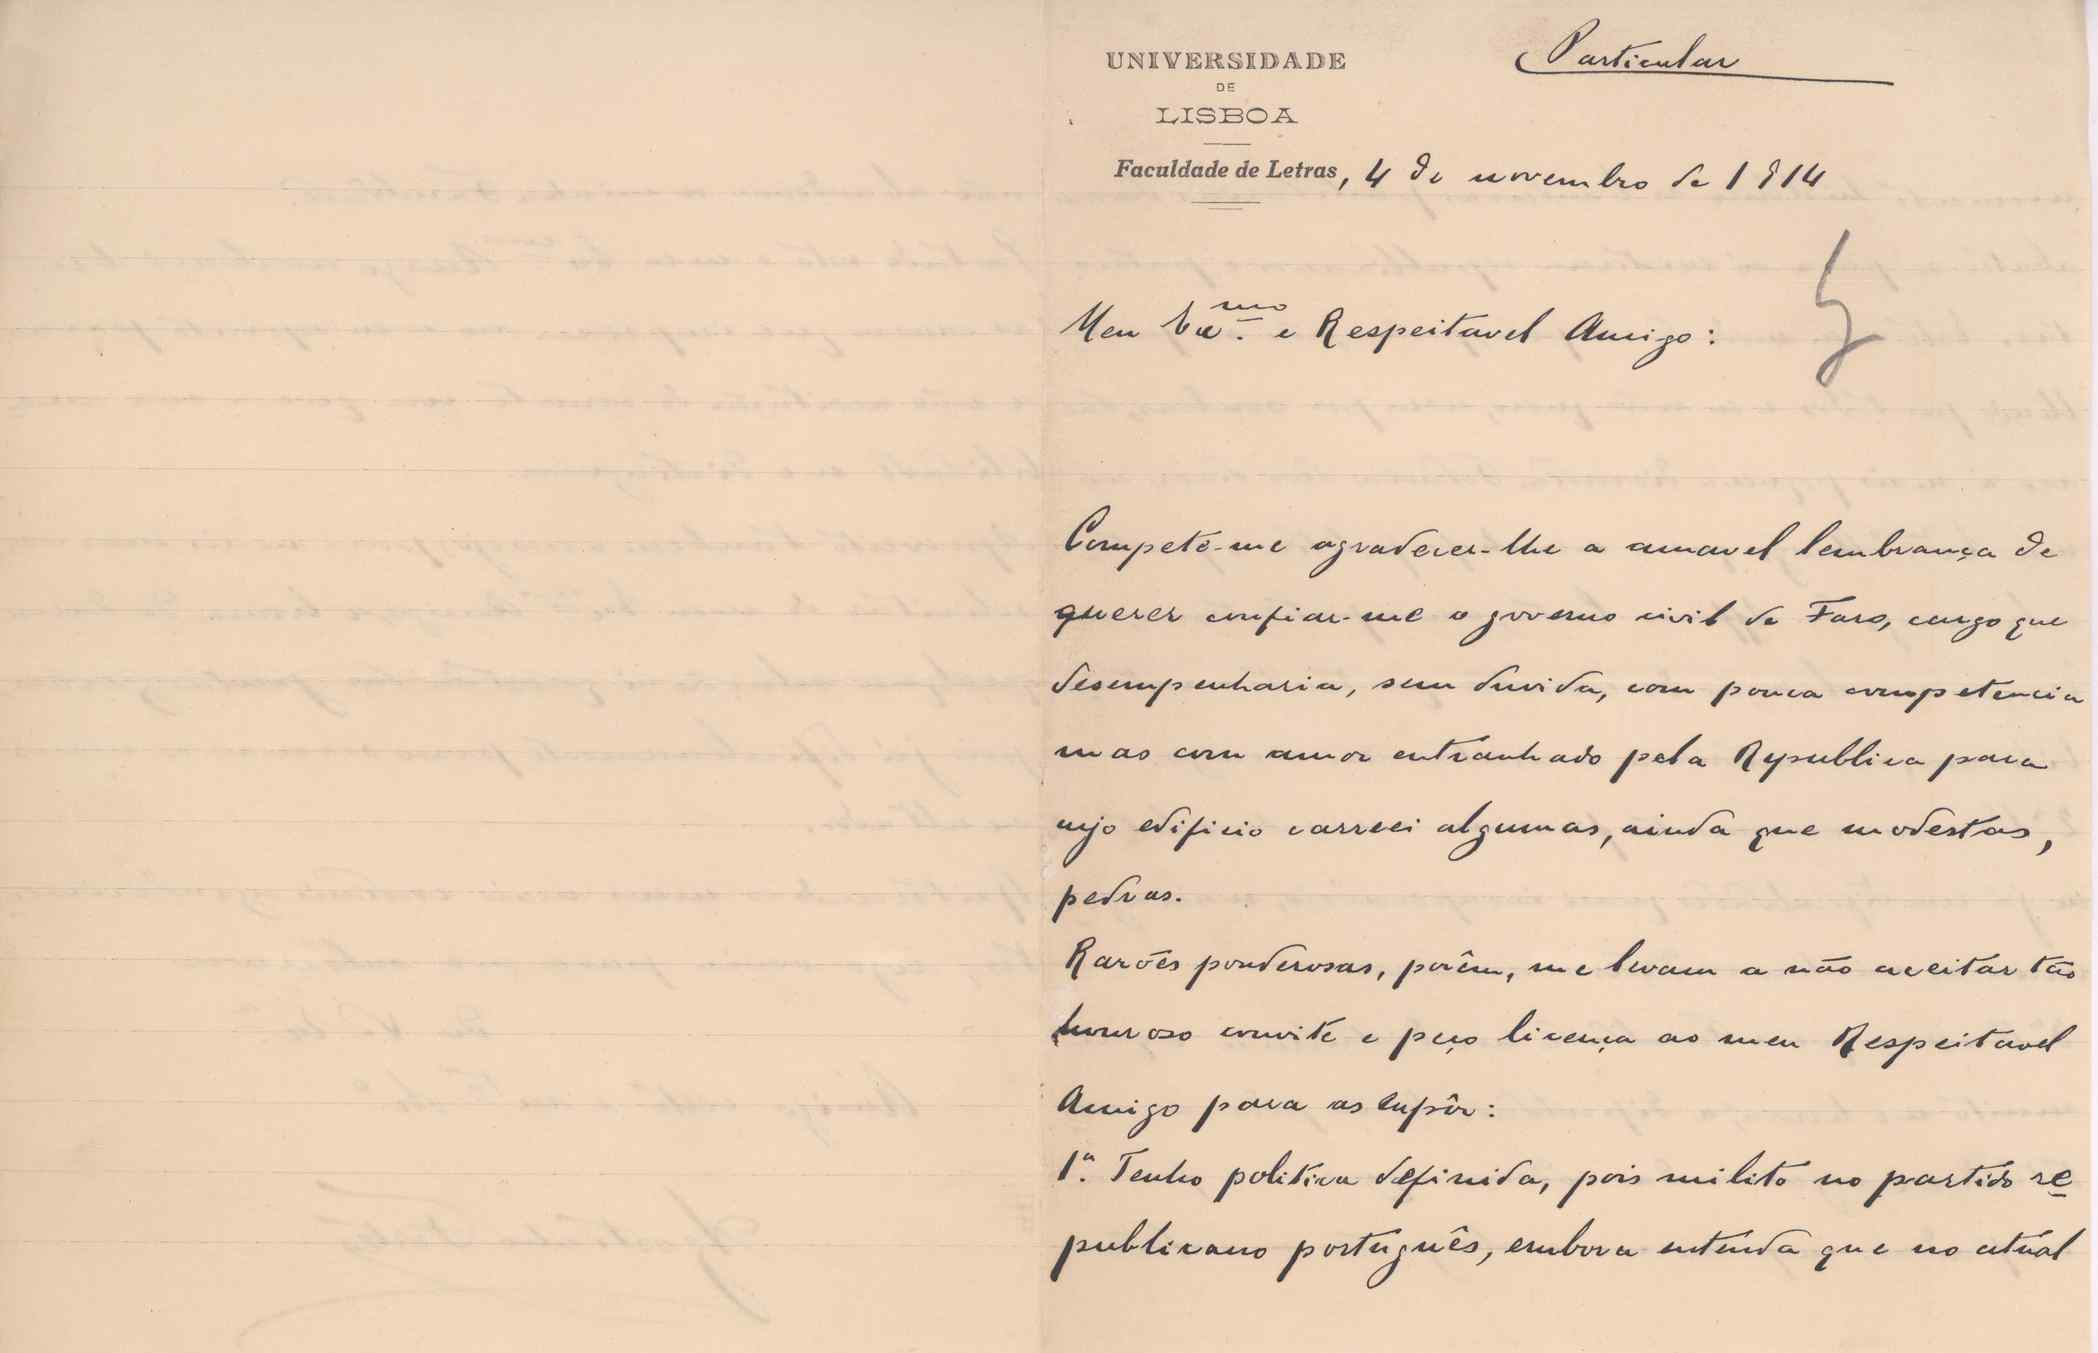 Particular
UNIVERSIDADE
DE
LISBOA
Faculdade de Letras, 4 de novembro de 1914
Meu Exmo. e Respeitavel Amigo:
Compete-me agradecer-lhe a amavel lembrança de
querer confiar-me o governo civil de Faro, cargo que
desempenharia, sem duvida, com pouca competencia
mas com amor entranhado pela Republica para
cujo edificio carreei algumas, ainda que modestas,
pedras.
Razões ponderosas, porêm, me levam a não aceitar tão
honroso convite e peço licença ao meu Respeitavel
Amigo para as expôr:
1ª. Tenho politica definida, pois milito no partido re
publicano português, embora entenda que no atual